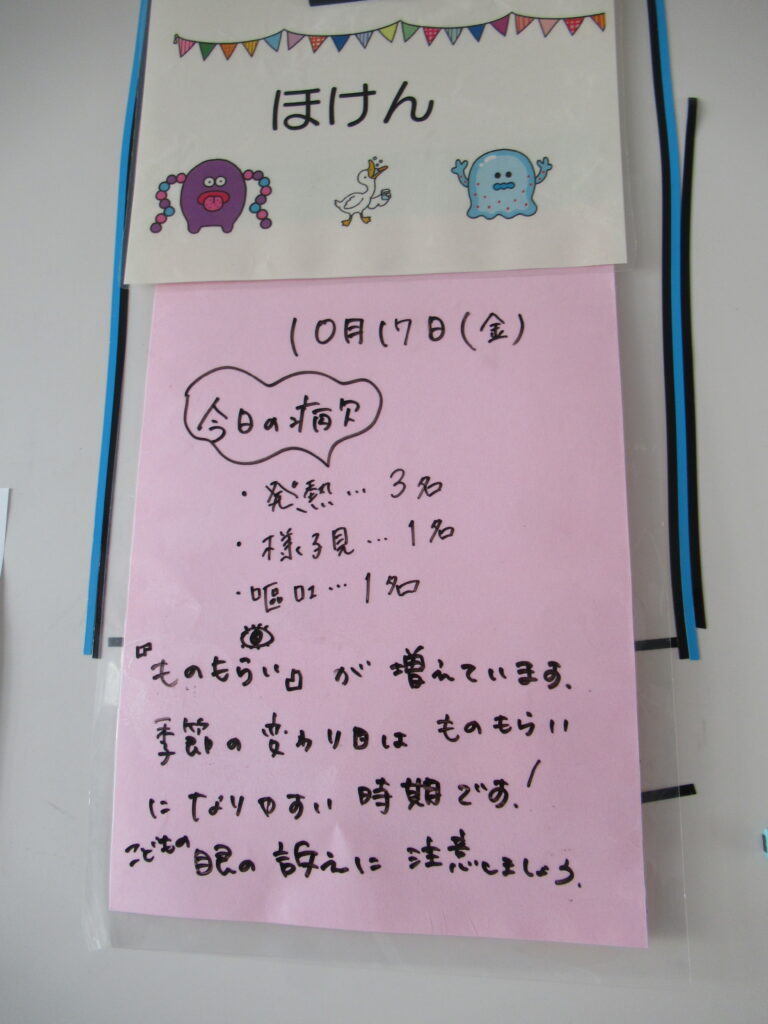 ほけん
10月17日(金)
今日の病欠
・発熱… 3名
・様子見… 1名
・嘔吐… 1名
『ものもらい』が 増えています。
季節の変わり目は ものもらい
になりやすい 時期です!
こどもの 眼の 訴えに 注意しましょう。